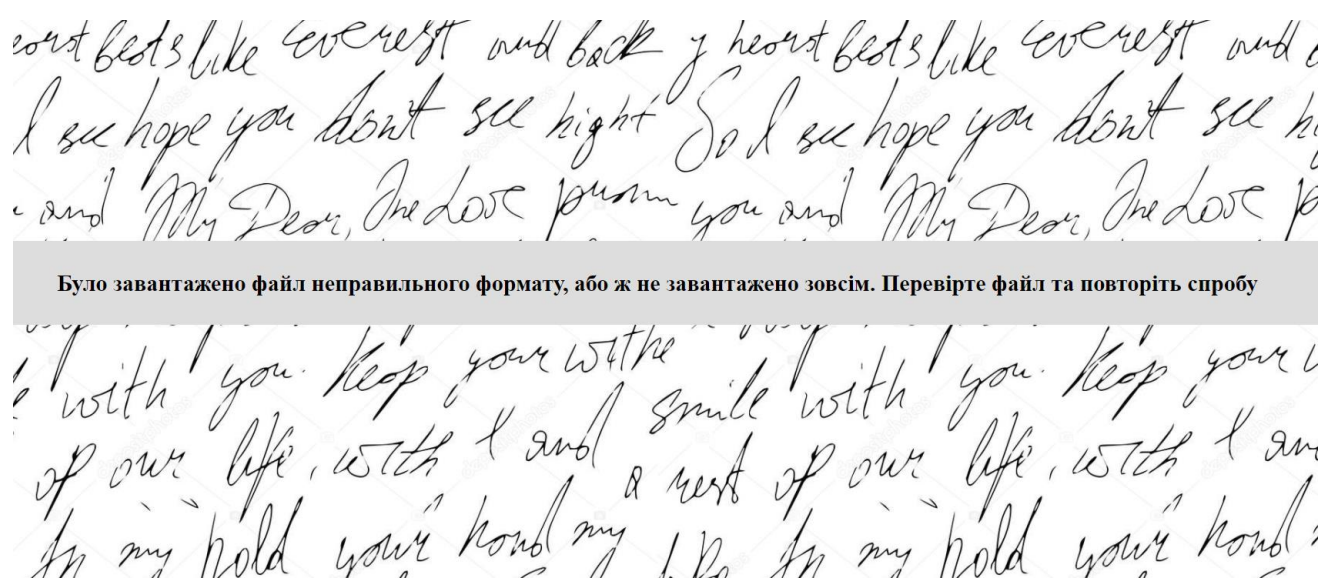 heart beats like Everest and back y heart beats like Everest and
I see hope you don't see hight So I see hope you don't see
and My Dear, One Love prom you and My Dear, One Love
Було завантажено файл неправильного формату, або ж не завантажено зовсім. Перевірте файл та повторіть спробу
with you. Keep your withe smile with you. Keep your
of our life, with I and a rest of our life, with I
my hold your hand my my hold your hand